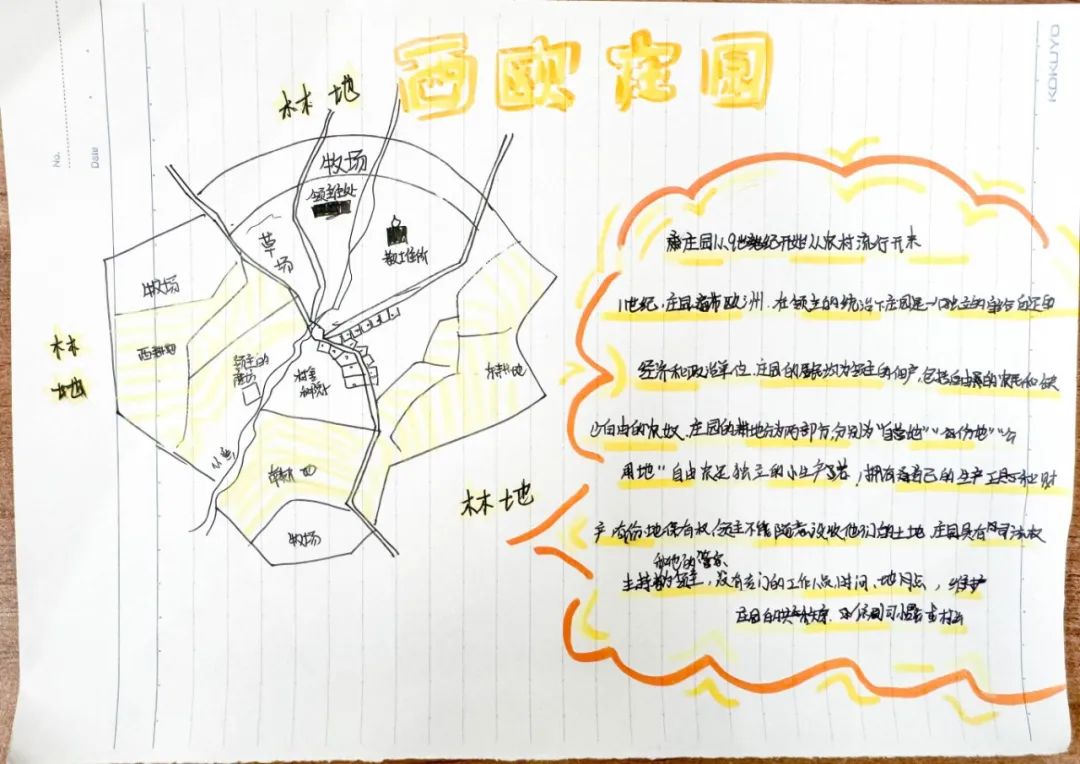 西欧庄园
KOKUYO
No.
Date
林地
牧场
领主住处
教士住所
草场
牧场
林
地
西耕地
领主的
磨坊
村舍
和
东耕地
小
耕地
牧场
林地
庄园从9世纪开始从农村流行开来
11世纪,庄园遍布欧洲.在领主的统治下庄园是一个独立的自给自足的
经济和政治单位.庄园的居民均为领主的佃户,包括自由的农民和缺
少自由的农奴.庄园的耕地分为两部分,分别为"自营地""份地""公
用地"自由农是独立的小生产者,拥有自己的生产工具和财
产 有份地保有权,领主不能随意没收他们的土地 庄园具有司法权
和他的管家
主持的领主,没有专门的工作人员,时间、地点,维护
庄园的秩序.